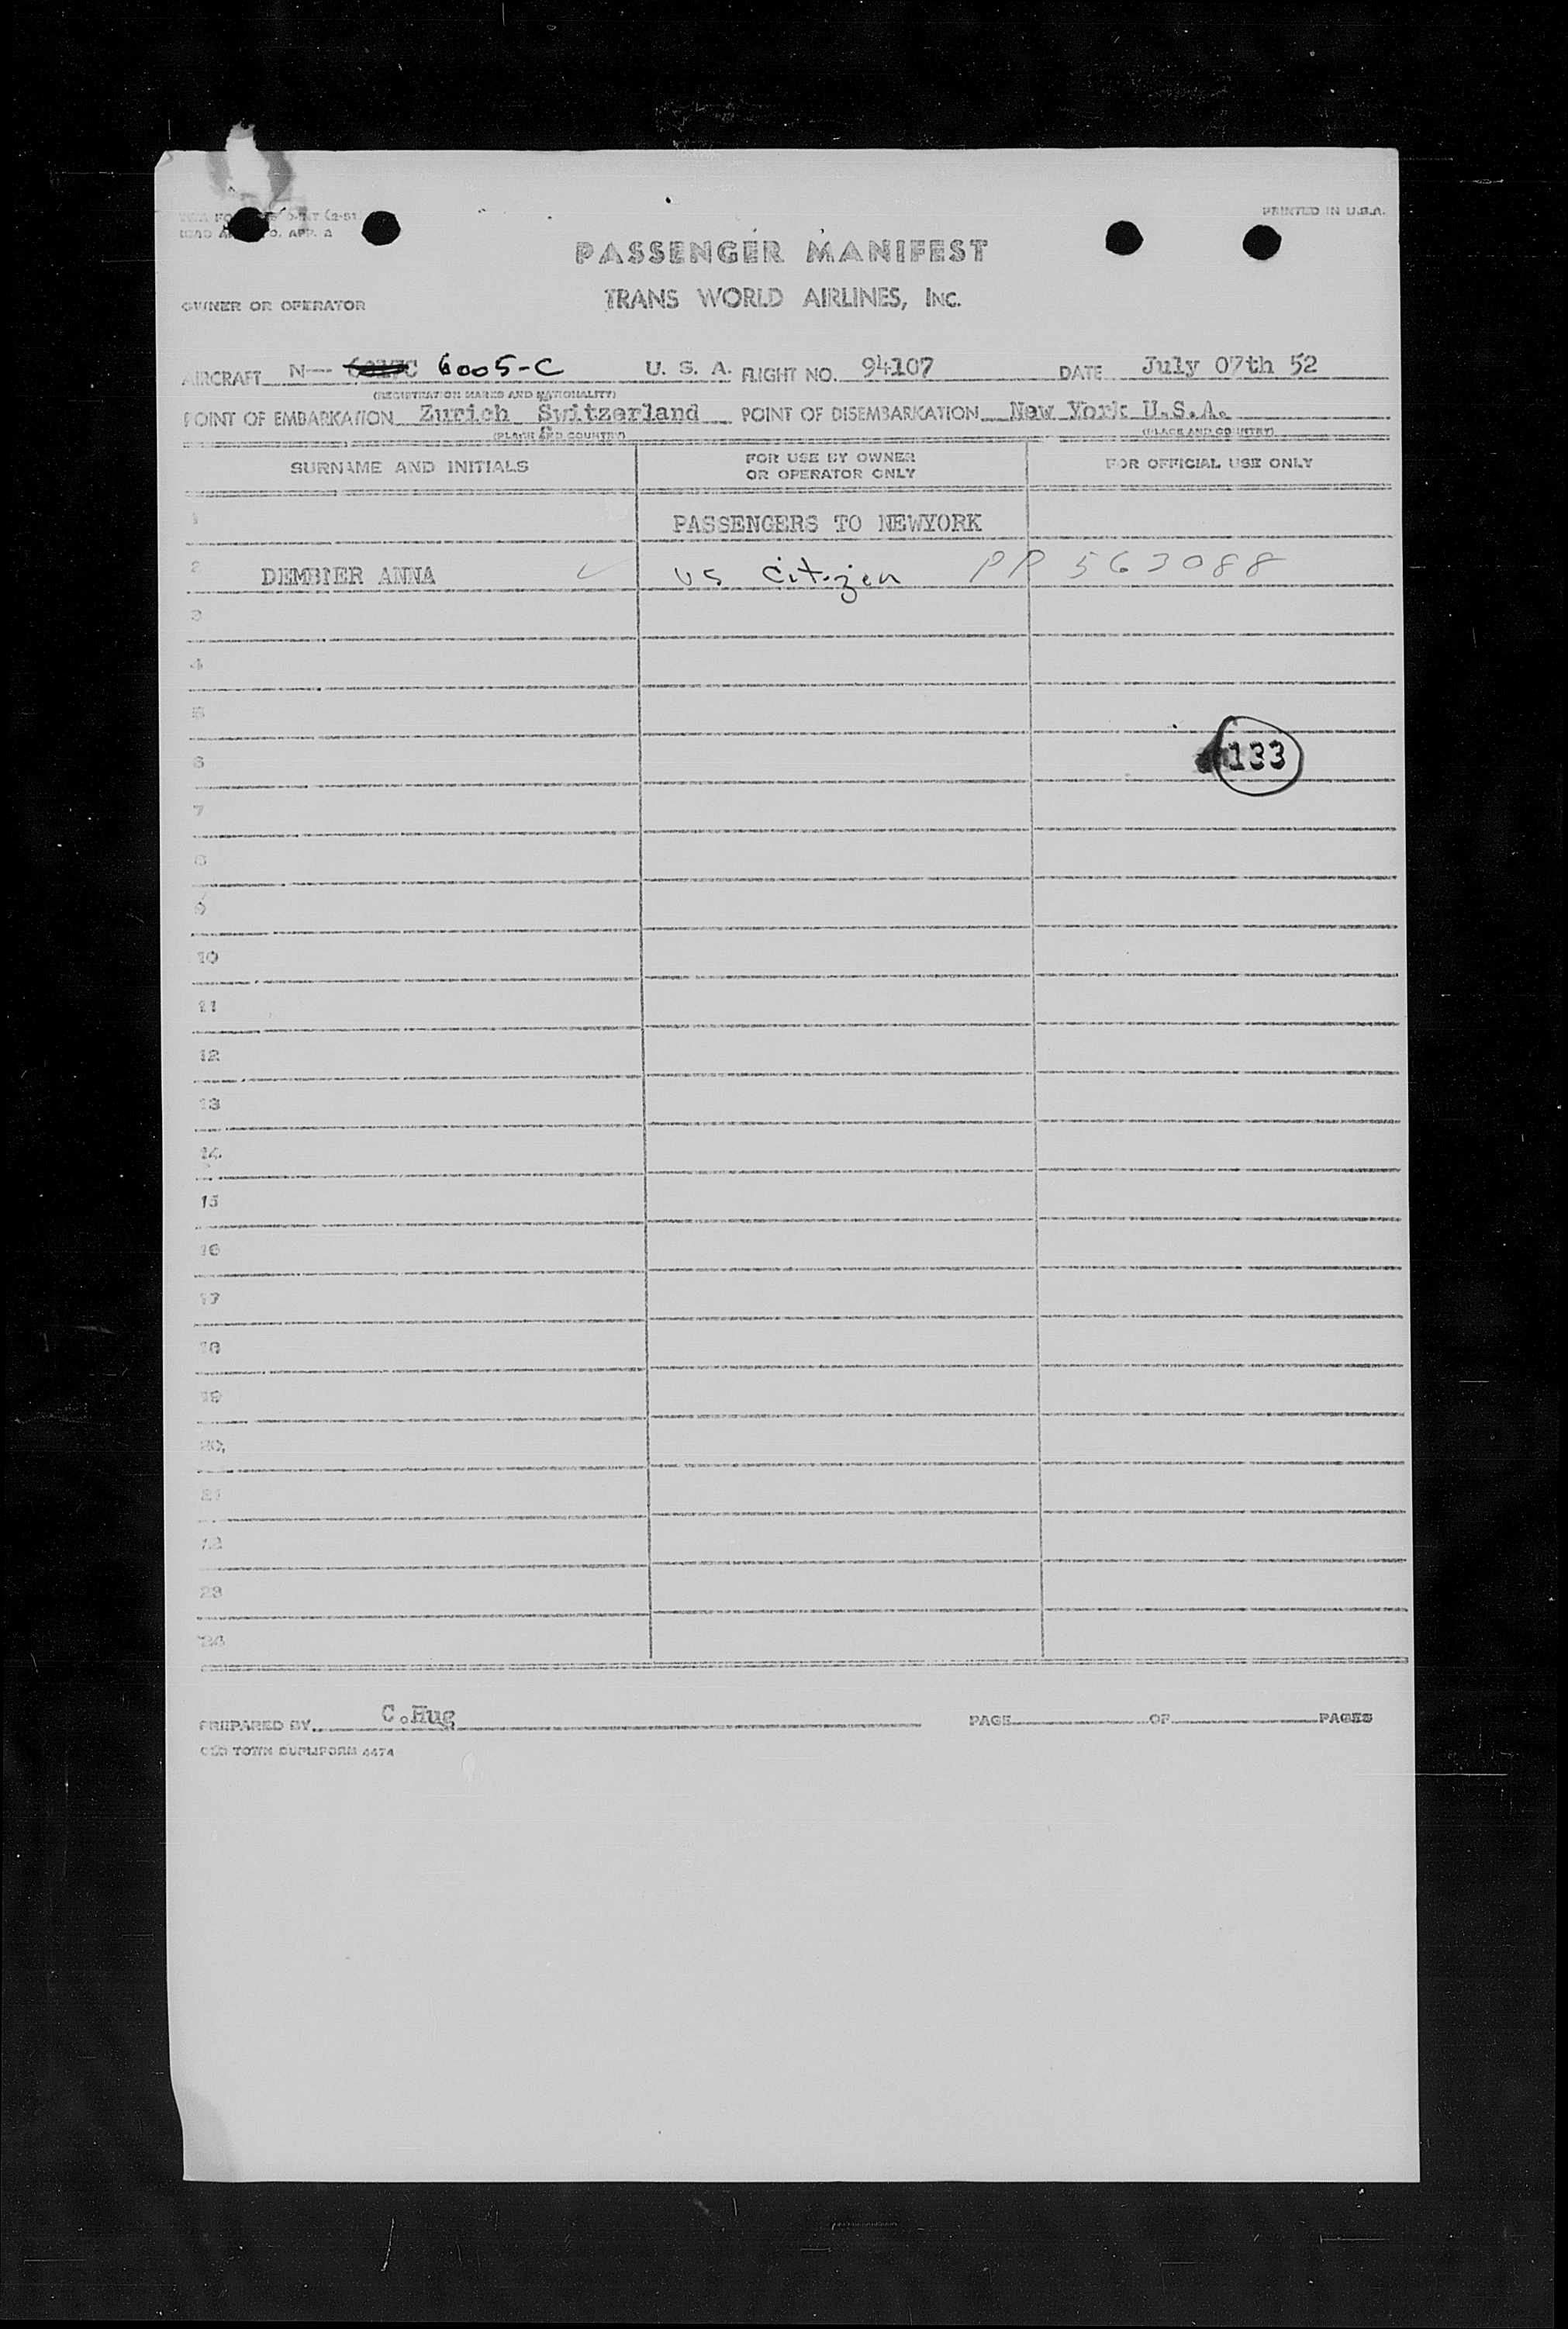 PRINTED IN U.S.A.
PASSENGER MANIFEST
OWNER OR OPERATOR TRANS WORLD AIRLINES, INC.
AIRCRAFT N- 6005-C U. S. A. FLIGHT NO. 94107 DATE July 07th 52
(REGISTRATION MARKS AND NATIONALITY)
POINT OF EMBARKATION Zurich Switzerland POINT OF DISEMBARKATION New York U.S.A.
(PLACE AND COUNTRY) (PLACE AND COUNTRY)
SURNAME AND INITIALS FOR USE BY OWNER OR OPERATOR ONLY FOR OFFICIAL USE ONLY
1 PASSENGERS TO NEWYORK
2 DEMBIER ANNA ✓ US Citizen PP 563088
3
4
5
6 133
7
8
9
10
11
12
13
14
15
16
17
18
19
20
21
12
23
24
PREPARED BY C.Hug PAGE OF PAGES
OLD TOWN DUPLIFORM 4474